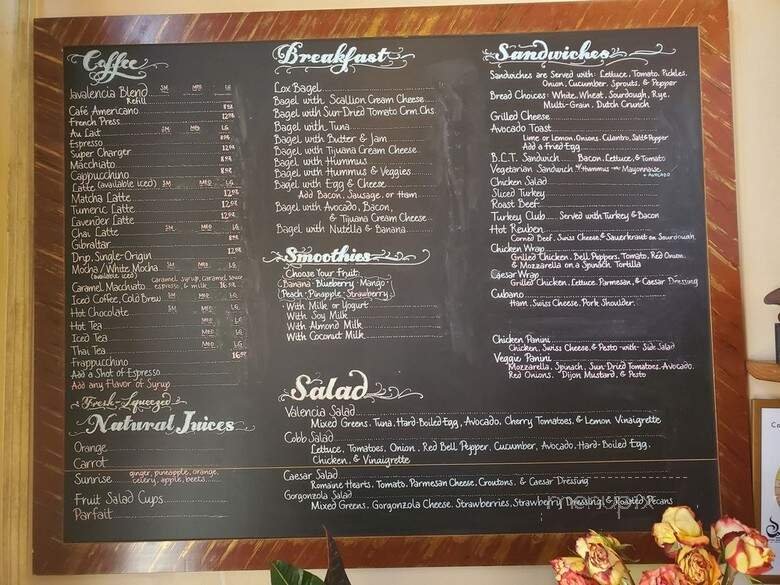 Coffee
Javalencia Blend SM MED LG
Refill
Café Americano 8oz
French Press 12oz
Au Lait SM MED LG
Espresso 8oz
Super Charger 12oz
Macchiato 8oz
Cappuccino 8oz
Latte (available iced) SM MED LG
Matcha Latte 12oz
Tumeric Latte 12oz
Lavender Latte 12oz
Chai Latte SM MED LG
Gibraltar 8oz
Drip, Single-Origin 12oz
Mocha/White Mocha SM MED LG
(available iced)
Caramel Macchiato caramel syrup, caramel sauce
espresso, & milk 16oz
Iced Coffee, Cold Brew SM MED LG
Hot Chocolate SM MED LG
Hot Tea MED LG
Iced Tea MED LG
Thai Tea MED LG
Frappucchino 16oz
Add a Shot of Espresso
Add any Flavor of Syrup
Fresh-Squeezed
Natural Juices
Orange
Carrot
Sunrise ginger, pineapple, orange,
celery, apple, beets
Fruit Salad Cups
Parfait
Breakfast
Lox Bagel
Bagel with Scallion Cream Cheese
Bagel with Sun-Dried Tomato Crm.Chs.
Bagel with Tuna
Bagel with Butter & Jam
Bagel with Tijuana Cream Cheese
Bagel with Hummus
Bagel with Hummus & Veggies
Bagel with Egg & Cheese
Add Bacon, Sausage, or Ham
Bagel with Avocado, Bacon,
& Tijuana Cream Cheese
Bagel with Nutella & Banana
Smoothies
Choose Your Fruit:
Banana · Blueberry · Mango ·
Peach · Pinapple · Strawberry
· With Milk or Yogurt
· With Soy Milk
· With Almond Milk
· With Coconut Milk
Salad
Valencia Salad
Mixed Greens, Tuna, Hard-Boiled Egg, Avocado, Cherry Tomatoes, & Lemon Vinaigrette
Cobb Salad
Lettuce, Tomatoes, Onion, Red Bell Pepper, Cucumber, Avocado, Hard-Boiled Egg,
Chicken, & Vinaigrette
Caesar Salad
Romaine Hearts, Tomato, Parmesan Cheese, Croutons, & Caesar Dressing
Gorgonzola Salad
Mixed Greens, Gorgonzola Cheese, Strawberries, Strawberry Dressing & Roasted Pecans
Sandwiches
Sandwiches are Served with: Lettuce, Tomato, Pickles,
Onion, Cucumber, Sprouts, & Pepper
Bread Choices: White, Wheat, Sourdough, Rye,
Multi-Grain, Dutch Crunch
Grilled Cheese
Avocado Toast
Lime or Lemon, Onions, Cilantro, Salt & Pepper
Add a Fried Egg
B.C.T. Sandwich Bacon, Lettuce, & Tomato
Vegetarian Sandwich w/ Hummus or Mayonnaise
+ AVOCADO
Chicken Salad
Sliced Turkey
Roast Beef
Turkey Club Served with Turkey & Bacon
Hot Reuben
Corned Beef, Swiss Cheese & Sauerkraut on Sourdough
Chicken Wrap
Grilled Chicken, Bell Peppers, Tomato, Red Onion,
& Mozzarella on a Spinach Tortilla
Caesar Wrap
Grilled Chicken, Lettuce, Parmesan, & Caesar Dressing
Cubano
Ham, Swiss Cheese, Pork Shoulder
Chicken Panini
Chicken, Swiss Cheese, & Pesto -with- Side Salad
Veggie Panini
Mozzarella, Spinach, Sun Dried Tomatoes, Avocado,
Red Onions, Dijon Mustard, & Pesto
menupix